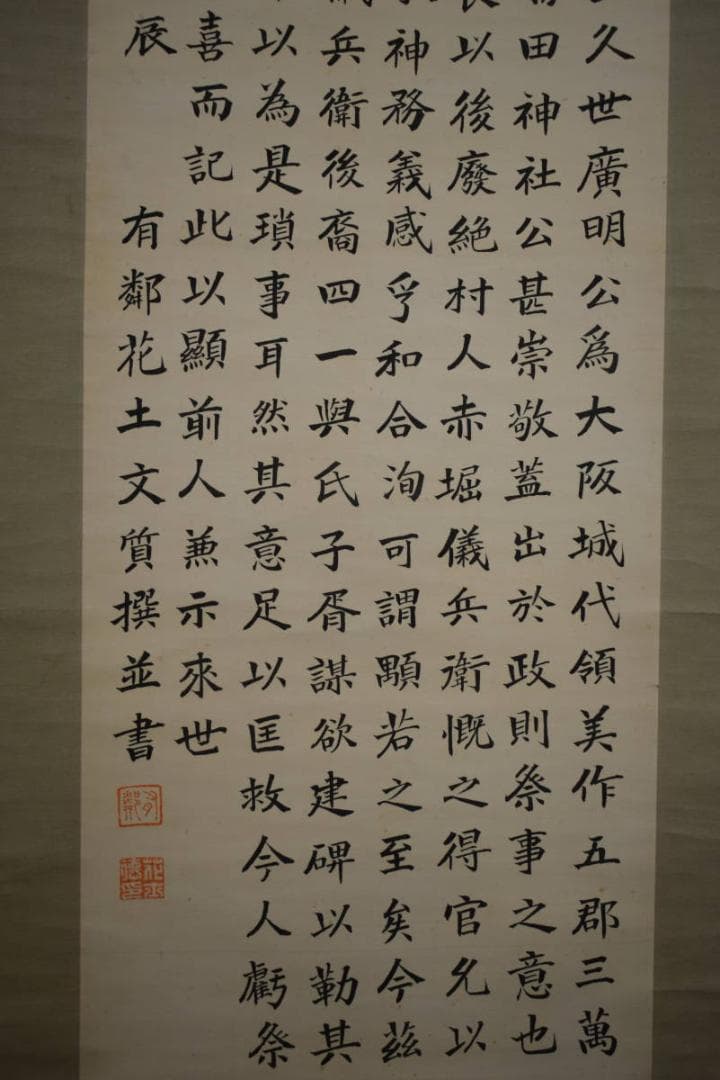 久世廣明公爲大阪城代領美作五郡三萬
田神社公甚崇敬蓋出於政則祭事之意也
以後廢絶村人赤堀儀兵衛慨之得官允以
神務義感孚和合洵可謂顒若之至矣今茲
兵衛後裔四一與氏子胥謀欲建碑以勒其
以為是瑣事耳然其意足以匡救今人虧祭
喜而記此以顯前人兼示來世
辰 有鄰花土文質撰並書